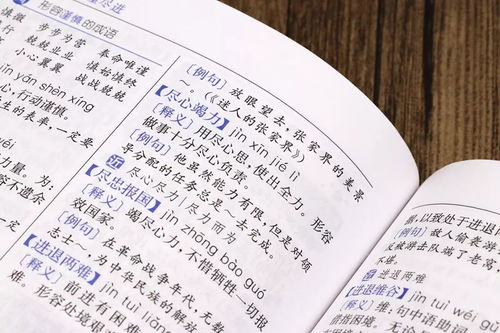 形容谨慎的成语
步步为营 奉命唯谨
兢兢业业 慎始慎终
小心翼翼 战战兢兢
yán shēn xíng
心,行动谨慎。
生的表率,一定要
[例句] 放眼望去,张家界的美景
~。(《迷人的张家界》)
【尽心竭力】jìn xīn jié lì
[释义] 用尽心思,使出全力。形容
做事十分尽心负责。
[例句] 他虽然能力有限,但是对领
导分配的任务总是~去完成。
近 尽心尽力/尽力而为
【尽忠报国】jìn zhōng bào guó
[释义] 竭尽忠心,不惜牺牲一切报
效国家。
[例句] 在革命战争年代,无数
志士~,为中华民族的解放
【进退两难】jìn tuì liǎng
[释义] 前进有困难
难。形容处境艰
据,以致处于进退
[例句] 敌人偷袭
又被游击队端了老窝
不堪。
近 进退两难
【进退维谷】jìn tuì wéi gǔ
[释义] 维:句中语助词